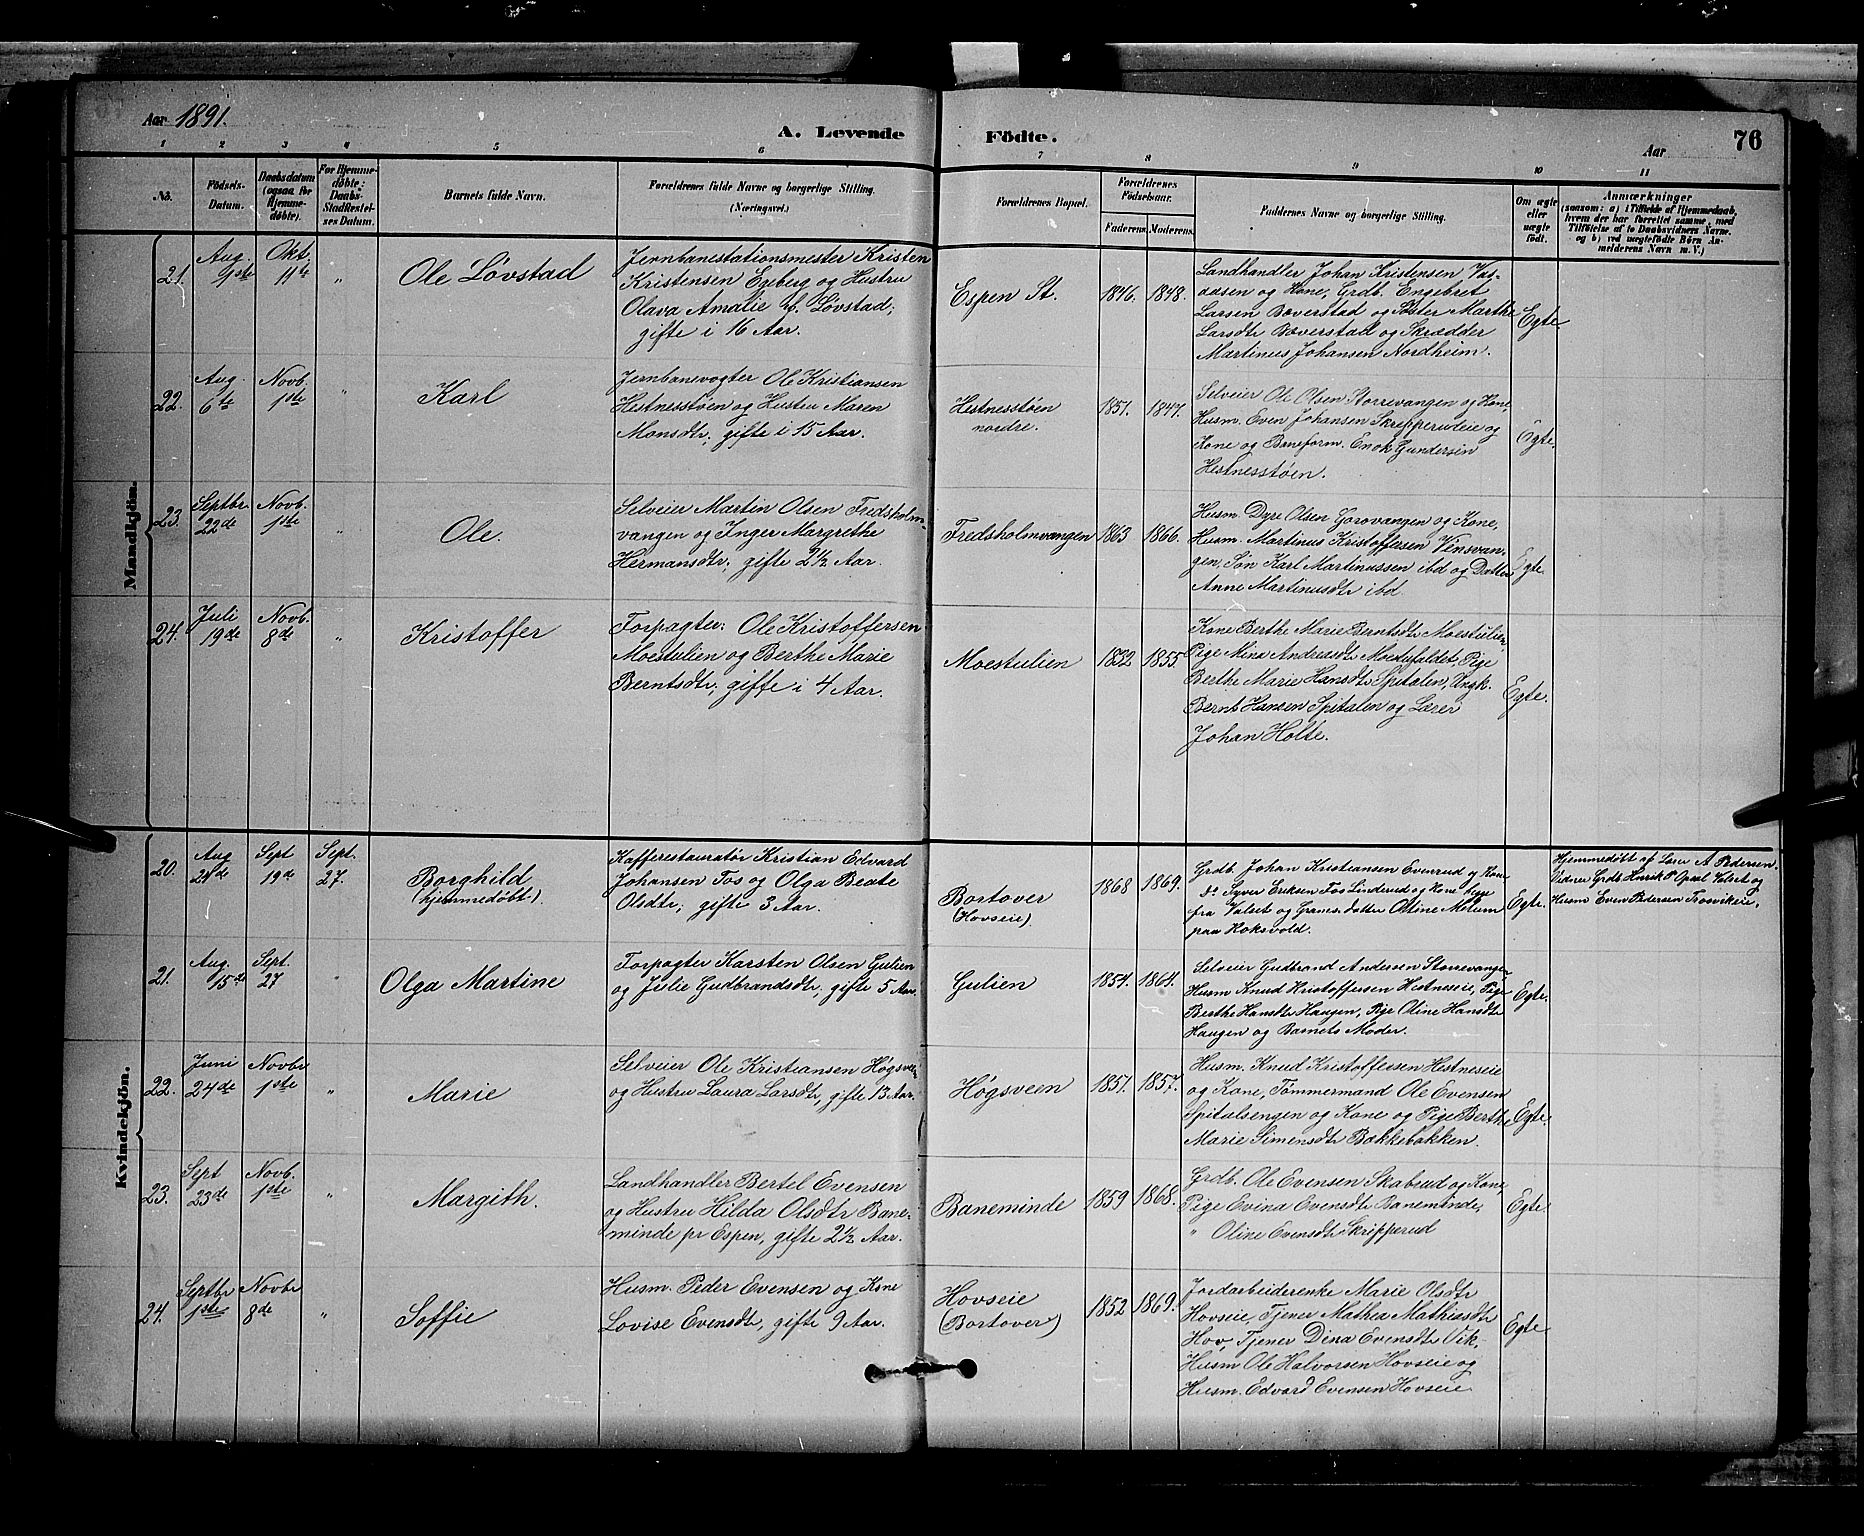 Aar 1891.
A. Levende Födte.
Aar
76
1 2 3 4 5 6 7 8 9 10 11
No.
Födsels-
Datum.
Daabsdatum
(ogsaa for
Hjemme-
döbte).
For Hjemme-
döbte:
Daabs-
Stadfæstel-
ses Datum.
Barnets fulde Navn.
Forældrenes fulde Navne og borgerlige Stilling.
(Næringsvei.)
Forældrenes Bopæl.
Forældrenes
Födselsaar.
Faderens. Moderens.
Faddernes Navne og borgerlige Stilling.
Om ægte
eller
uægte
född.
Anmærkninger
(saasom: a) i Tilfælde af Hjemmedaab,
hvem der har forrettet samme, med
Tilföielse af to Daabsvidners Navne.
og b) ved uægtefödte Börn An-
melderens Navn m. V.)
Mandkjön.
21. Aug. 9ste Okt. 11te " Ole Løvstad
Jernbanestationsmester Kristen
Kristensen Egeberg og Hustru
Olava Amalie f. Løvstad;
gifte i 16 Aar.
Espen St. 1846. 1848.
Landhandler Johan Kristensen Vas-
aasen og Kone, Grdb. Engebret
Larsen Bøverstad og Søster Marthe
Larsdtr Bøverstad og Skrædder
Martinus Johansen Nordheim.
Egte
22. Aug. 6te Novb. 1ste " Karl
Jernbanevogter Ole Kristiansen
Hestnesstøen og Hustru Maren
Monsdtr; gifte i 15 Aar.
Hestnesstøen
nordre.
1851. 1847.
Selveier Ole Olsen Storrevangen og Kone,
Husm. Even Johansen Skripperudeie og
Kone og Baneform. Enok Gundersen
Hestnesstøen.
Egte.
23. Septbr 22de Novb. 1ste " Ole.
Selveier Martin Olsen Fredsholm-
vangen og Inger Margrethe
Hermansdtr; gifte 2½ Aar.
Fredsholmvangen 1863 1866.
Husm. Dyre Olsen Gorovangen og Kone,
Husm. Martinus Kristoffersen Vensvan-
gen, Søn Karl Martinussen ibd og Datter
Anne Martinusdtr ibd.
Egte.
24. Juli 19de Novb. 8de " Kristoffer
Forpagter: Ole Kristoffersen
Moestulien og Berthe Marie
Berntsdtr; gifte i 4 Aar.
Moestulien 1832 1855
Kone Berthe Marie Berntsdtr Moestulien,
Pige Mina Andreasdtr Pige
Berthe Marie Hansdtr Spitalen, Ungk.
Bernt Hansen Spitalen og Lærer
Johan Holte.
Egte.
Kvindekjön.
20. Aug 21de Sept 19de Sept. 27. Borghild
(hjemmedøbt)
Kafferestauratør Kristian Edvard
Johansen Fos og Olga Beate
Olsdtr; gifte 3 Aar.
Bortover
(Hovseie)
1868 1869.
Grdb. Johan Kristiansen Evenrud og Kone
do Syver Eriksen Fos Linderud og Kone begge
fra Valset og Gaardm. datter Oline Melum
paa Koksvold.
Egte.
Hjemmedøbt af Lærer A Pedersen.
Vidner Grdb. Henrik P Opsal Valset og
Husm Even Pedersen Fossvikeie.
21. Aug. 15de Sept. 27 " Olga Martine
Forpagter Karsten Olsen Gulien
og Julie Gudbrandsdtr, gifte 5 Aar.
Gulien 1854. 1864.
Selveier Gudbrand Andersen Storrevangen
Husm Knud Kristoffersen Hestneseie, Pige
Berthe Hansdtr Haugen, Pige Oline Hansdtr
Haugen og Barnets Moder.
Egte.
22. Juni 24de Novbr 1ste " Marie
Selveier Ole Kristiansen Høgsveen
og Hustru Laura Larsdtr, gifte 13 Aar.
Høgsveen 1851. 1857.
Husm. Knud Kristoffersen Hestneseie
og Kone, Tømmermand Ole Evensen
Spitalsengen og Kone og Pige Berthe
Marie Simensdtr Bakkebakken.
Egte.
23. Sept 23de Novb. 1ste " Margith.
Landhandler Bertel Evensen
og Hustru Hilda Olsdtr Bane-
minde pr Espen, gifte 2½ Aar.
Baneminde 1859 1868.
Grdb. Ole Evensen Skaberud og Kone,
Pige Evina Evensdtr Baneminde,
" Oline Evensdtr Skripperud
Egte.
24. Septbr 1ste Novbr 8de " Soffie
Husm. Peder Evensen og Kone
Lovise Evensdtr, gifte 9 Aar.
Hovseie
(Bortover)
1852 1869.
Jordarbeiderenke Marie Olsdtr
Hovseie, Tjener Mathea Mathiasdtr
Hov, Tjener Dina Evensdtr Vik,
Husm Ole Halvorsen Hovseie og
Husm. Edvard Evensen Hovseie
Egte.